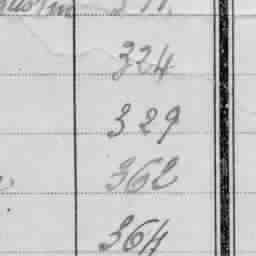 324
329
362
364